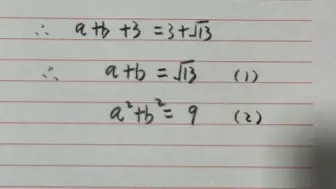 ∴ a+b+3 = 3+√13
∴ a+b = √13 (1)
a²+b² = 9 (2)